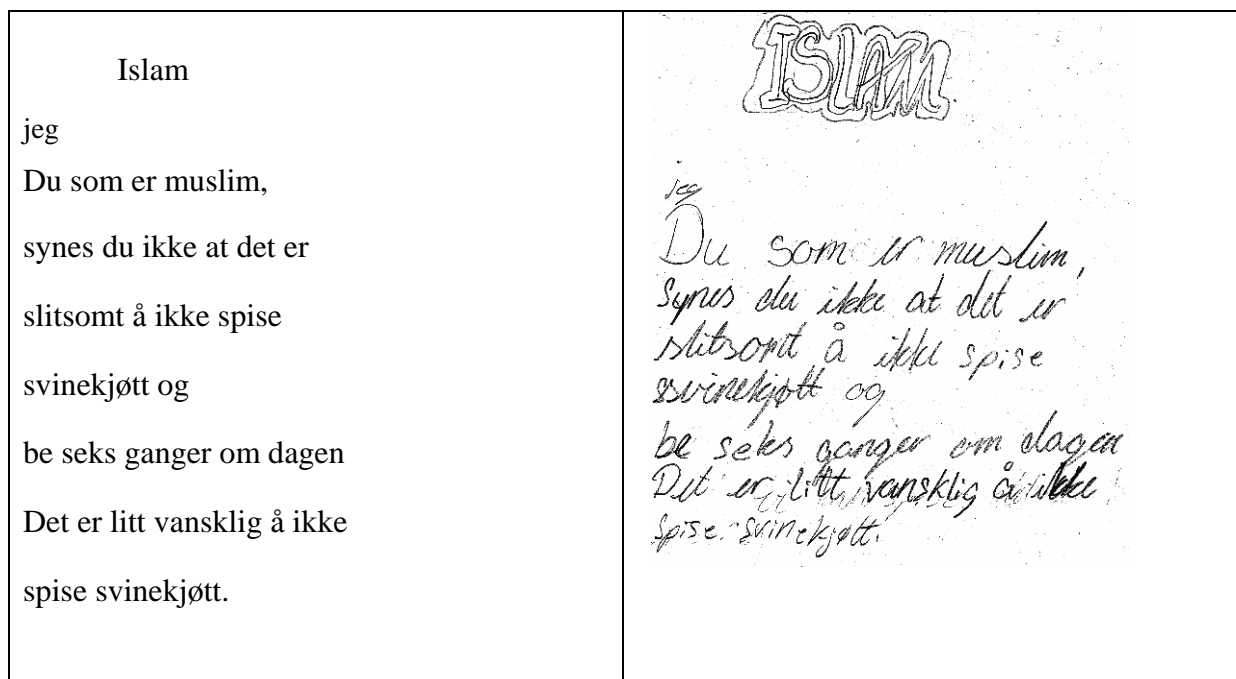 Islam
jeg
Du som er muslim,
synes du ikke at det er
slitsomt å ikke spise
svinekjøtt og
be seks ganger om dagen
Det er litt vansklig å ikke
spise svinekjøtt.
ISLAM
jeg
Du som er muslim,
synes du ikke at det er
slitsomt å ikke spise
svinekjøtt og
be seks ganger om dagen
Det er litt vansklig å ikke
spise svinekjøtt.